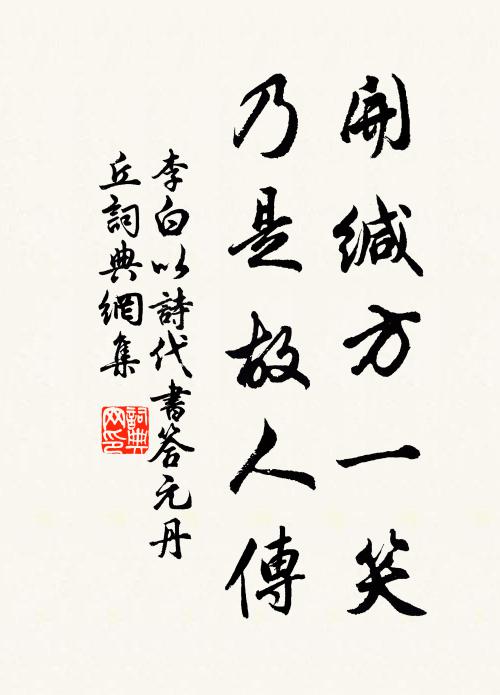 開缄方一笑
乃是故人傳
李白以詩代書答元丹
丘詞典網集
詞典
网印